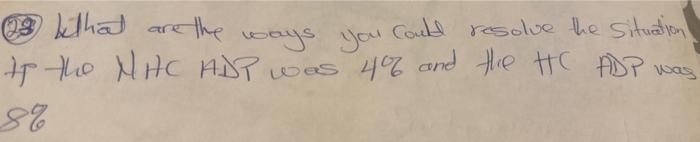 23 What are the ways you could resolve the situation
if the NHC ADP was 4% and the HC ADP was
8%